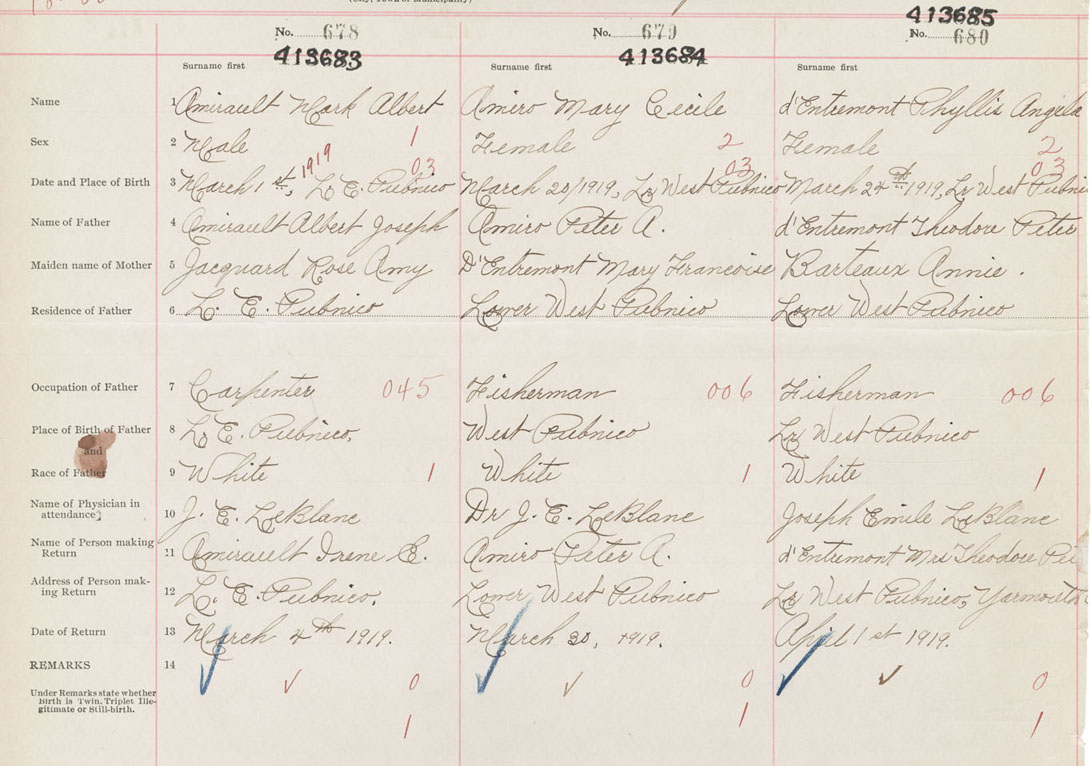 (City, Town or Municipality)
No. 678 No. 679 413685
413683 413684 No. 680
Surname first Surname first Surname first
Name 1 Amirault Mark Albert Amiro Mary Cecile d'Entremont Phyllis Angela
Sex 2 Male 1 Female 2 Female 2
03 03 03
Date and Place of Birth 3 March 1st, 1919 L. E. Pubnico March 20/1919, Lr West Pubnico March 24th 1919, Lr West Pubnico
Name of Father 4 Amirault Albert Joseph Amiro Peter A. d'Entremont Theodore Peter
Maiden name of Mother 5 Jacquard Rose Amy D'Entremont Mary Francoise Barteaux Annie.
Residence of Father 6 L. E. Pubnico Lower West Pubnico Lower West Pubnico
Occupation of Father 7 Carpenter 045 Fisherman 006 Fisherman 006
Place of Birth of Father 8 Lr E. Pubnico, West Pubnico Lr West Pubnico
and
Race of Father 9 White 1 White 1 White 1
Name of Physician in
attendance 10 J. E. LeBlanc Dr J. E. LeBlanc Joseph Emile LeBlanc
Name of Person making
Return 11 Amirault Irene E. Amiro Peter A. d'Entremont Mrs Theodore
Address of Person mak-
ing Return 12 L. E. Pubnico. Lower West Pubnico Lr West Pubnico, Yarmouth
Date of Return 13 March 4th 1919. March 30, 1919. April 1st 1919.
REMARKS 14
0 0 0
Under Remarks state whether
Birth is Twin, Triplet Ille-
gitimate or Still-birth.
1 1 1